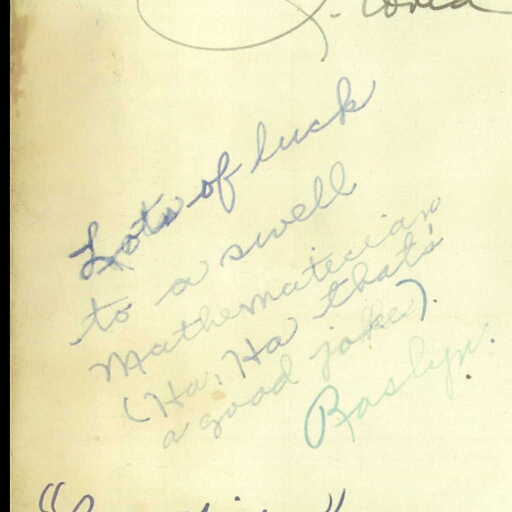 Lots of luck
to a swell
Mathematician
(Ha, Ha that's
a good joke).
Roslyn.